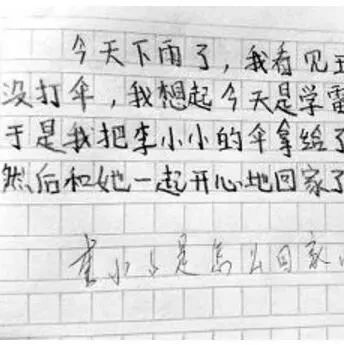 今天下雨了，我看见
没打伞，我想起今天是学雷
于是我把李小小的伞拿给了
然后和她一起开心地回家了
李小小是怎么回家